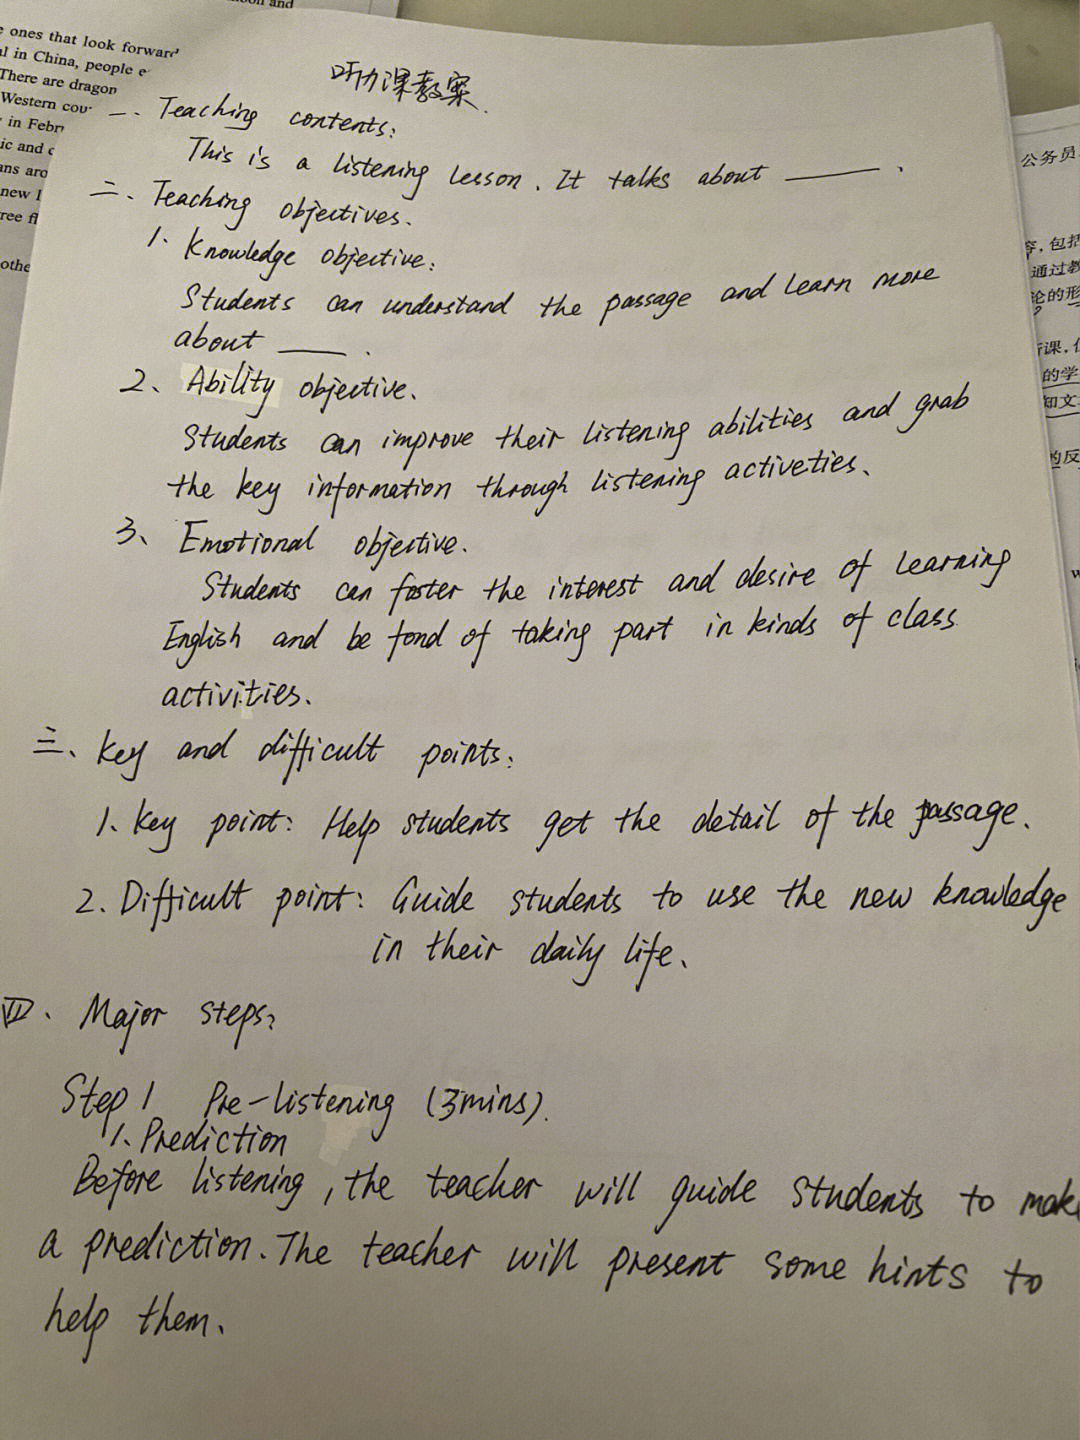 oon and
ones that look forward
al in China, people e
There are dragon
Western cou
in Febr
ic and c
ans aro
new l
ree fl
othe
听力课教案.
一. Teaching contents:
This is a listening lesson. It talks about ______.
二. Teaching objectives.
1. Knowledge objective:
Students can understand the passage and learn more
about ____.
2、Ability objective.
Students can improve their listening abilities and grab
the key information through listening activeties.
3、Emotional objective.
Students can foster the interest and desire of learning
English and be fond of taking part in kinds of class
activities.
三、Key and difficult points:
1. Key point: Help students get the detail of the passage.
2. Difficult point: Guide students to use the new knowledge
in their daily life.
四、Major steps:
Step 1 Pre-listening (3mins).
1. Prediction
Before listening, the teacher will guide students to make
a prediction. The teacher will present some hints to
help them.
公务员
容,包括
通过教
论的形
听课,
的学
知文
的反